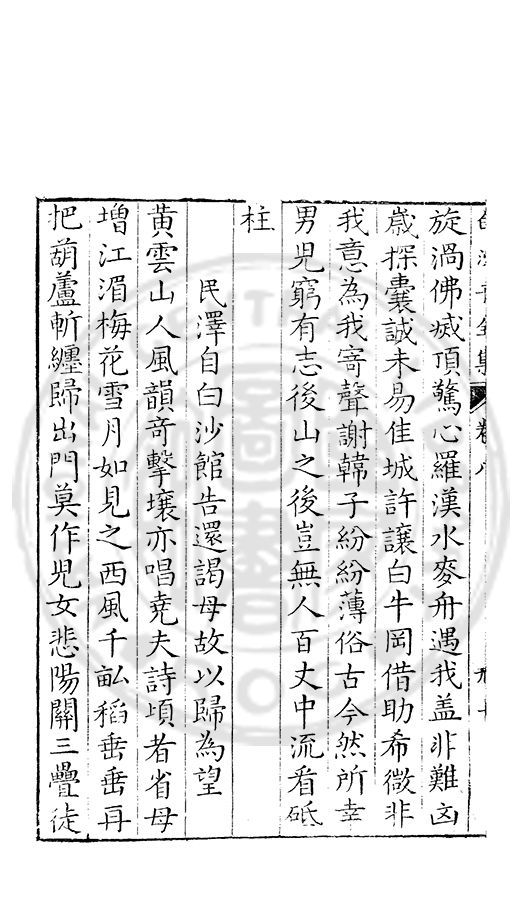 卷八
旋渦佛燃頂驚心羅漢水麥舟遇我盖非難凶
嵗探囊誠未易佳城許讓白牛岡借助希微非
我意為我寄聲謝韓子紛紛薄俗古今然所幸
男兒窮有志後山之後豈無人百丈中流看砥
柱
民澤自白沙館告還謁母故以歸為望
黄雲山人風韻竒擊壤亦唱堯夫詩頃者省母
增江湄梅花雪月如見之西風千畝稻垂垂再
把葫蘆斬纏歸出門莫作兒女悲陽關三疊徒